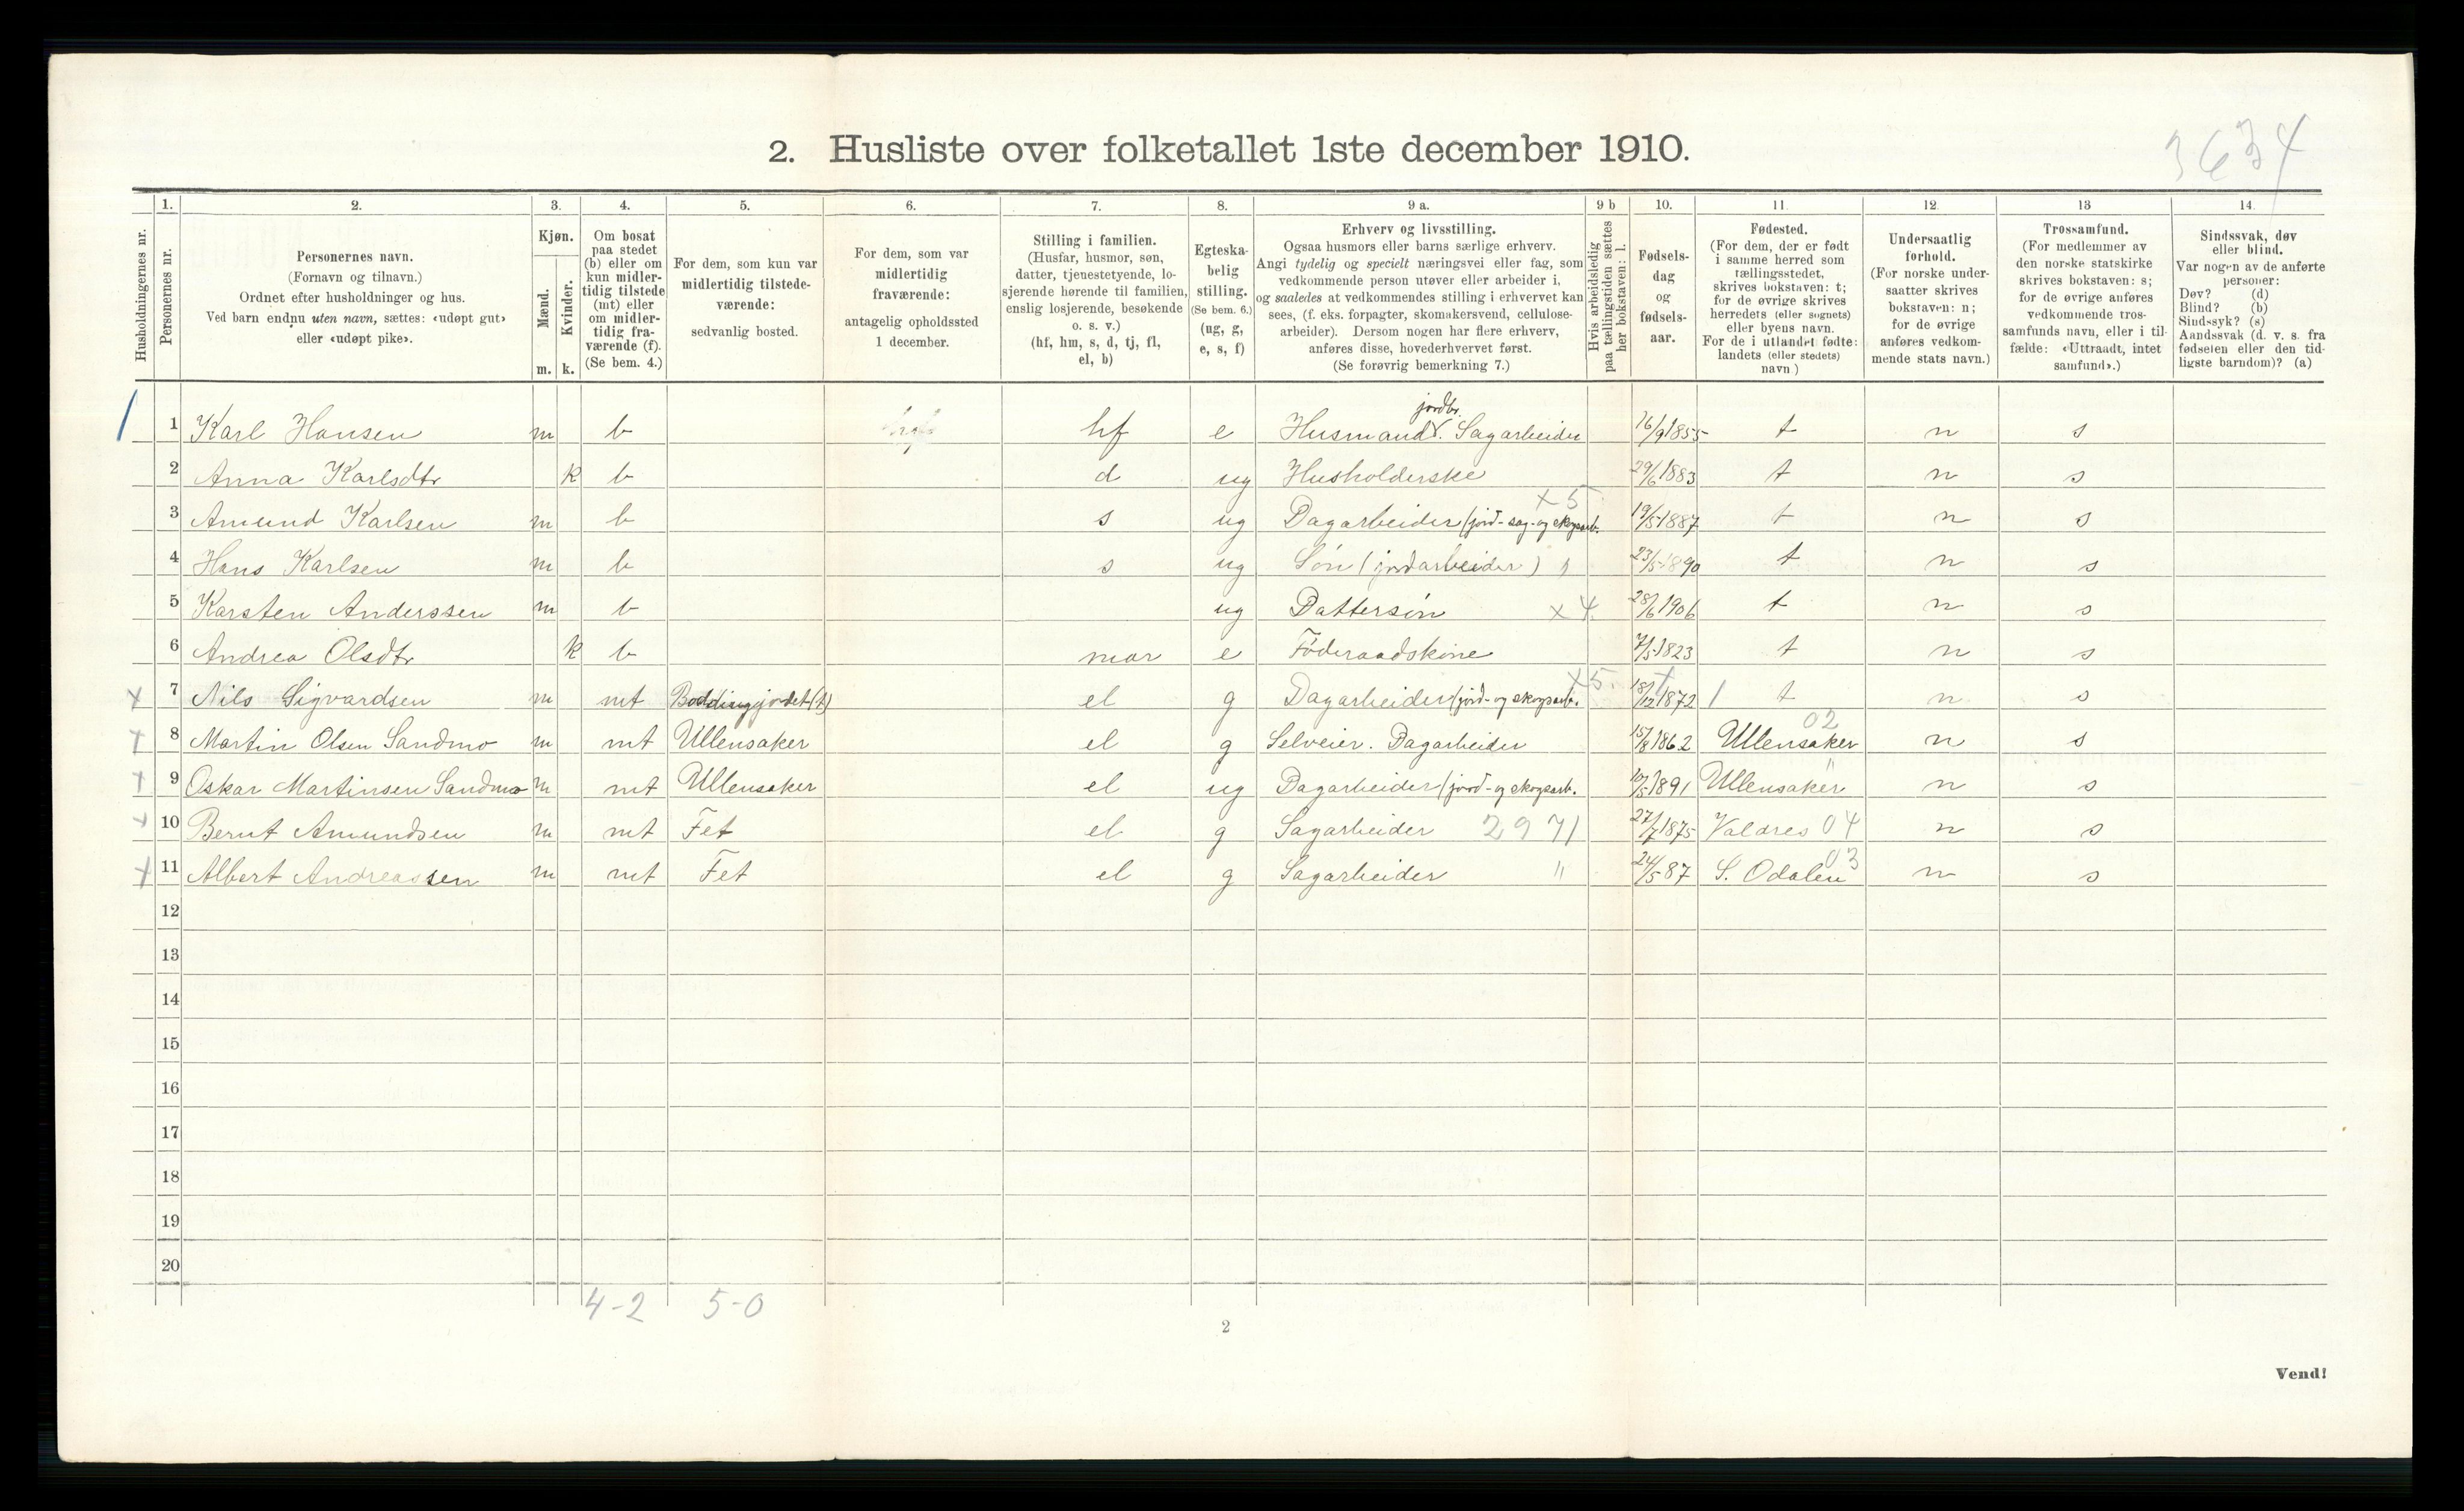 3634
2. Husliste over folketallet 1ste december 1910.
Husholdningernes nr.
1.
Personernes nr.
2.
Personernes navn.
(Fornavn og tilnavn.)
Ordnet efter husholdninger og hus.
Ved barn endnu uten navn, sættes: «udøpt gut»
eller «udøpt pike».
3.
Kjøn.
Mænd.
Kvinder.
m. k.
4.
Om bosat
paa stedet
(b) eller om
kun midler-
tidig tilstede
(mt) eller
om midler-
tidig fra-
værende (f).
(Se bem. 4.)
5.
For dem, som kun var
midlertidig tilstede-
værende:
sedvanlig bosted.
6.
For dem, som var
midlertidig
fraværende:
antagelig opholdssted
1 december.
7.
Stilling i familien.
(Husfar, husmor, søn,
datter, tjenestetyende, lo-
sjerende hørende til familien,
enslig losjerende, besøkende
o. s. v.)
(hf, hm, s, d, tj, fl,
el, b)
8.
Egteska-
belig
stilling.
(Se bem. 6.)
(ug, g,
e, s, f)
9 a.
Erhverv og livsstilling.
Ogsaa husmors eller barns særlige erhverv.
Angi tydelig og specielt næringsvei eller fag, som
vedkommende person utøver eller arbeider i,
og saaledes at vedkommendes stilling i erhvervet kan
sees, (f. eks. forpagter, skomakersvend, cellulose-
arbeider). Dersom nogen har flere erhverv,
anføres disse, hovederhvervet først.
(Se forøvrig bemerkning 7.)
9 b
Hvis arbeidsledig
paa tællingstiden sættes
her bokstaven: l.
10.
Fødsels-
dag
og
fødsels-
aar.
11.
Fødested.
(For dem, der er født
i samme herred som
tællingsstedet,
skrives bokstaven: t;
for de øvrige skrives
herredets (eller sognets)
eller byens navn.
For de i utlandet fødte:
landets (eller stedets)
navn.)
12.
Undersaatlig
forhold.
(For norske under-
saatter skrives
bokstaven: n;
for de øvrige
anføres vedkom-
mende stats navn.)
13
Trossamfund.
(For medlemmer av
den norske statskirke
skrives bokstaven: s;
for de øvrige anføres
vedkommende tros-
samfunds navn, eller i til-
fælde: «Uttraadt, intet
samfund».)
14.
Sindssvak, døv
eller blind.
Var nogen av de anførte
personer:
Døv? (d)
Blind? (b)
Sindssyk? (s)
Aandssvak (d. v. s. fra
fødselen eller den tid-
ligste barndom)? (a)
jordbr.
1 Karl Hansen m b hf e Husmand. Sagarbeider 16/9 1855 t n s
2 Anna Karlsdtr k b d ug Husholderske 29/6 1883 t n s
x 5
3 Amund Karlsen m b s ug Dagarbeider (jord- sag- og skogsarb. 19/5 1887 t n s
4 Hans Karlsen m b s ug Søn (jordarbeider) 23/5 1890 t n s
5 Karsten Anderssen m b ug Dattersøn x 4. 28/6 1906 t n s
6 Andrea Olsdtr k b mor e Føderaadskone 7/5 1823 t n s
x 5.
x 7 Nils Sigvardsen m mt Boddingjordet (t) el g Dagarbeider (jord- og skogsarb. 18/12 1872 t n s
02
x 8 Martin Olsen Sandmo m mt Ullensaker el g Selveier. Dagarbeider 15/8 1862 Ullensaker n s
x 9 Oskar Martinsen Sandmo m mt Ullensaker el ug Dagarbeider (jord- og skogsarb. 10/5 1891 Ullensaker " n s
x 10 Bernt Amundsen m mt Fet el g Sagarbeider 2971 27/7 1875 Valdres 04 n s
x 11 Albert Andreassen m mt Fet el g Sagarbeider " 24/5 87 S. Odalen 03 n s
12
13
14
15
16
17
18
19
20
4-2 5-0
2
Vend!